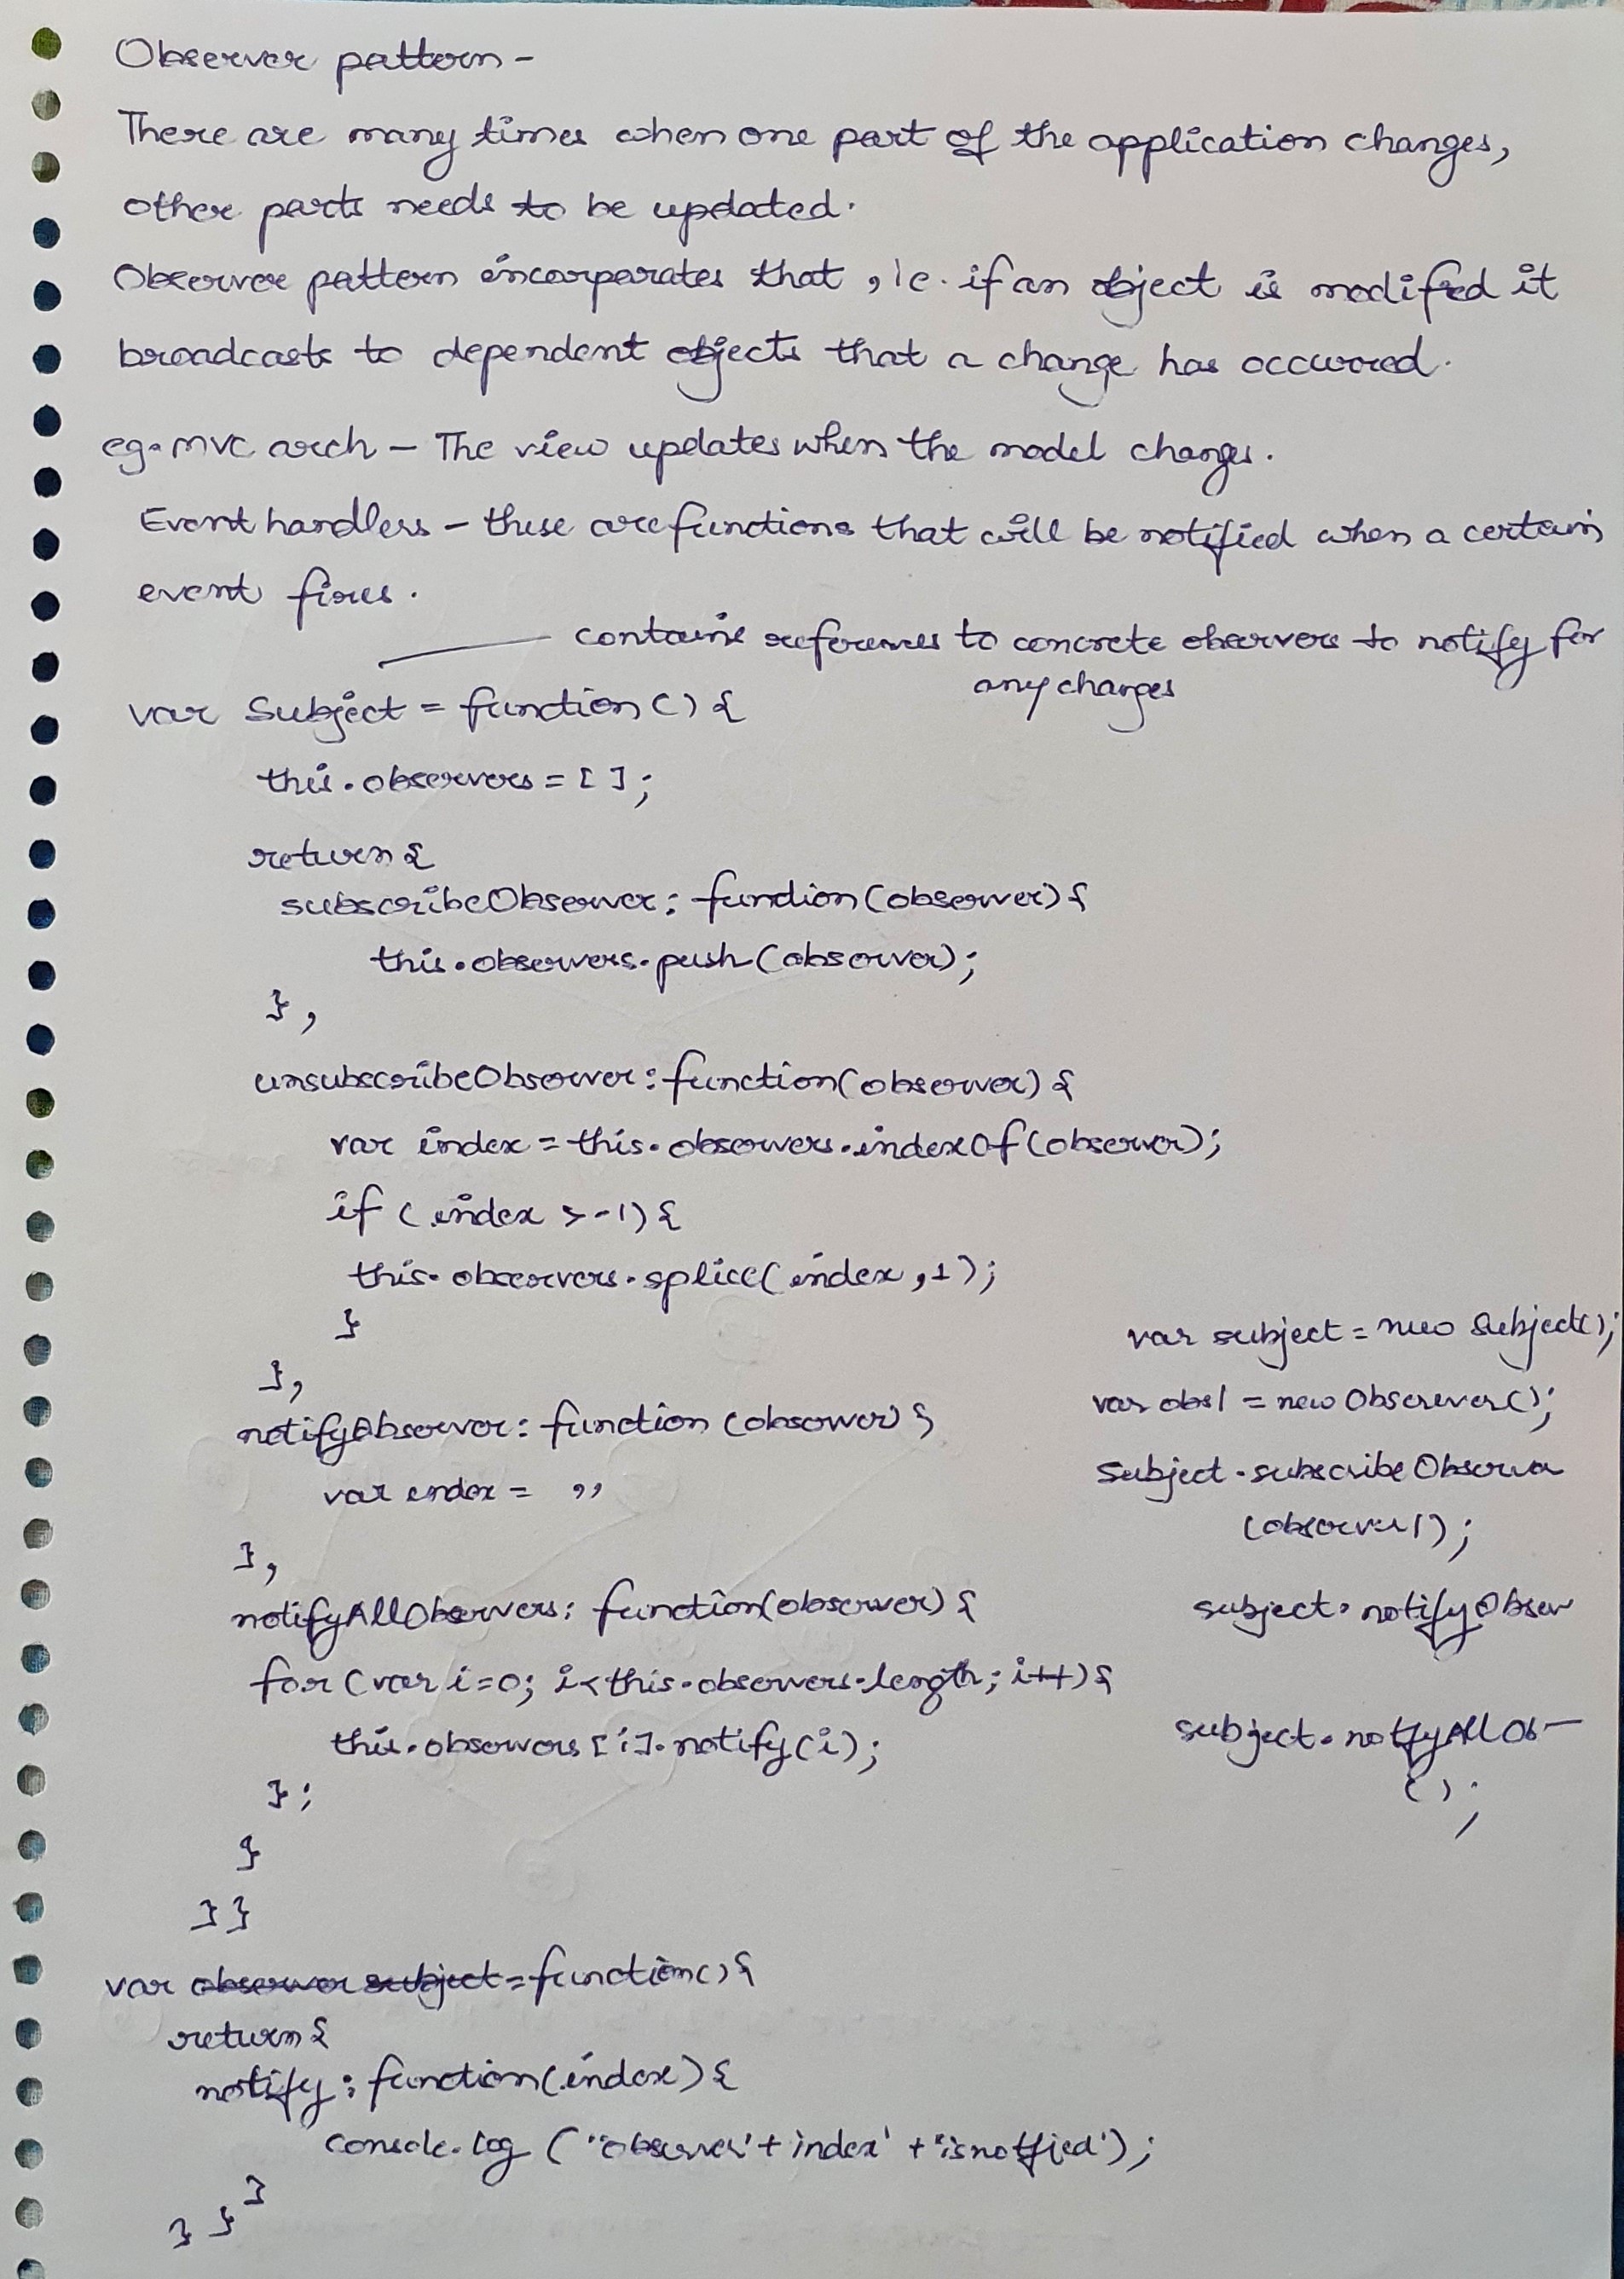 Observer pattern -
There are many times when one part of the application changes,
other parts needs to be updated.
Observer pattern incorparates that, ie. if an object is modified it
broadcasts to dependent objects that a change has occurred.
eg. MVC arch - The view updates when the model changes.
Event handless - these are functions that will be notified when a certain
event fires.
contains references to concrete observers to notify for
any changes
var Subject = function() {
this.observers = [ ];
return {
subscribeObserver: function(observer) {
this.observers.push(observer);
},
unsubscribeObserver: function(observer) {
var index = this.observers.indexOf(observer);
if (index > -1) {
this.observers.splice(index, 1);
}
},
notifyObserver: function (observer) {
var index = ,,
},
notifyAllObservers: function(observer) {
for (var i=0; i<this.observers.length; i++) {
this.observers[i].notify(i);
};
}
}}
var observer subject = function() {
return {
notify: function(index) {
console.log ("observer' + index' + 'is notified');
}
} }
var subject = new Subject();
var obs1 = new Obserever();
Subject.subscribeObserver
(observer1);
subject.notifyObser
subject.notifyAllOb-
();